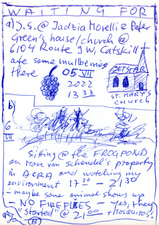 WAITING FOR
a) J.S. @ Jadzia Morelli & Peter
Green's house/church @
6104 Route 9W, Catskill
are some mulberries
there 05 VII
2022
13
ST. MARY'S
CHURCH
b)
6
VII
Sitting @ the FROG POND
on Han van Schendel's property
in ACRA and watching my
environment 17 - 21 30
- maybe some animal shows up
- NO FIREFLIES - yes, they
"started" @ 21 00 + mosquitos